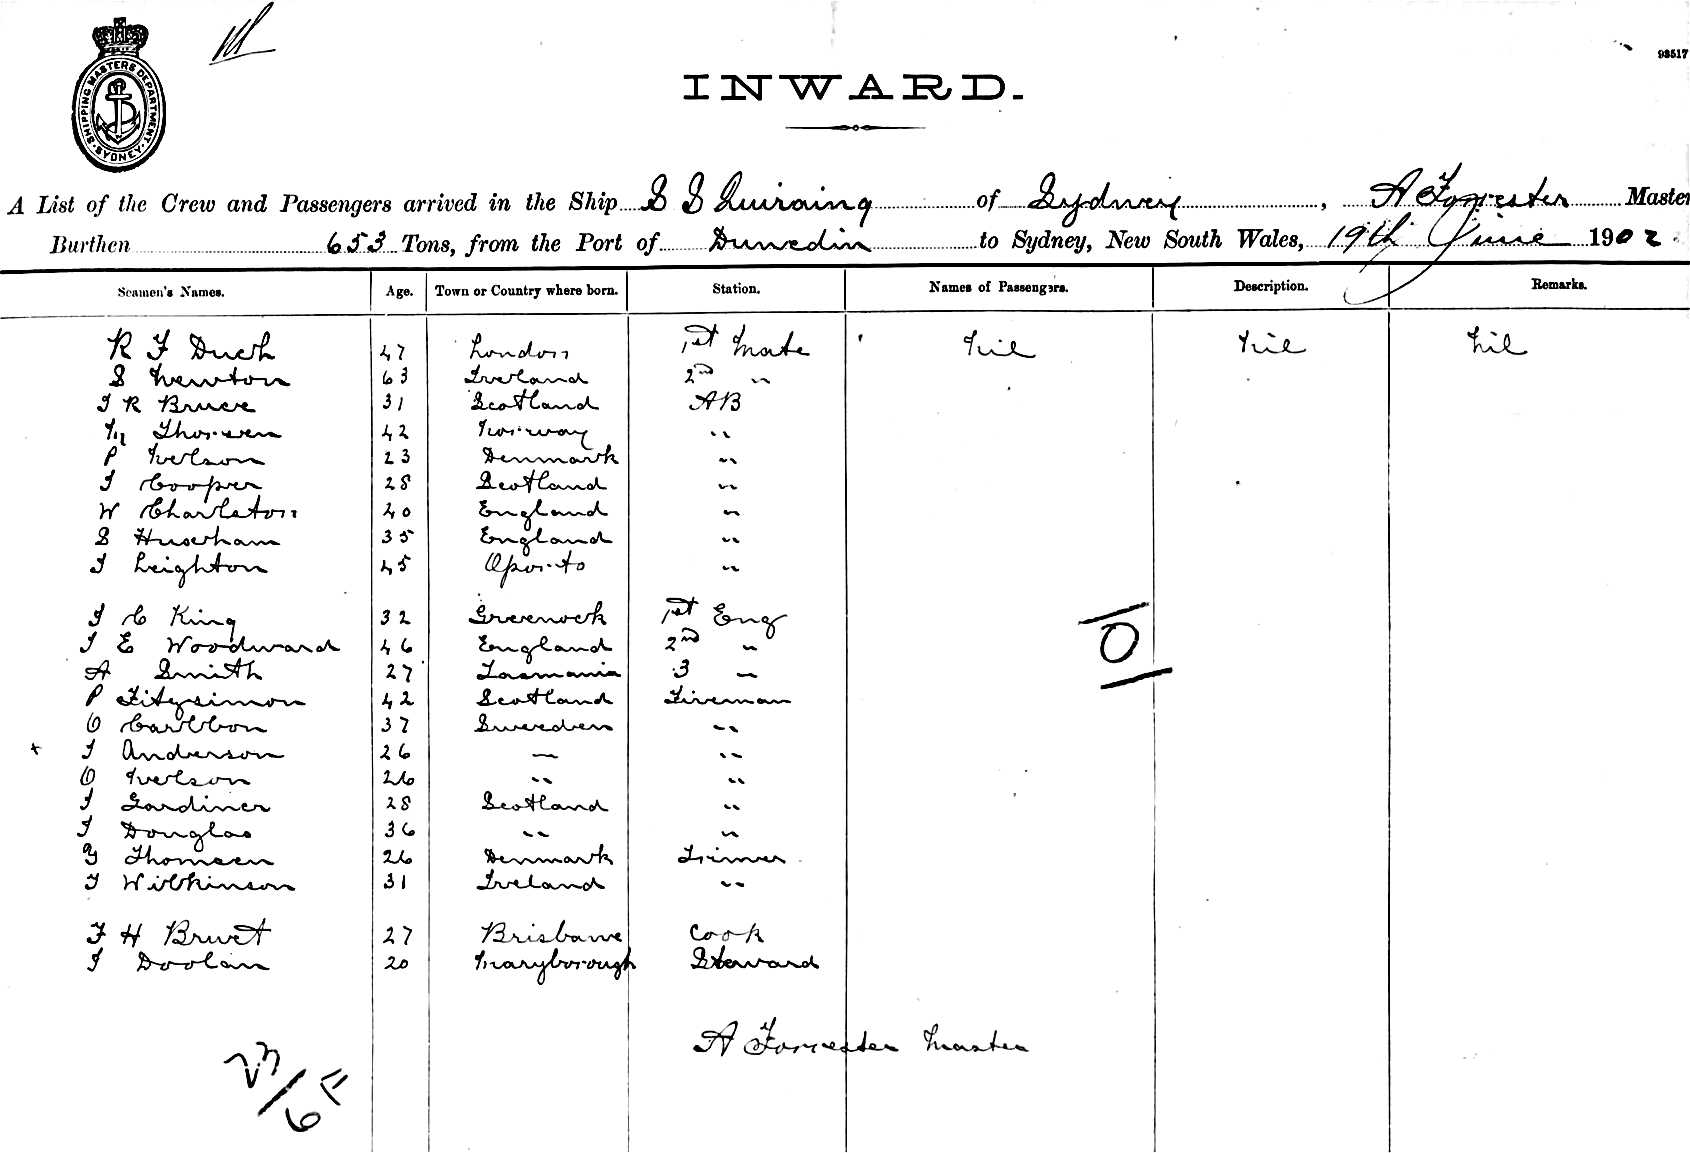 SHIPPING MASTERS DEPARTMENT SYDNEY
93517
INWARD.
A List of the Crew and Passengers arrived in the Ship S S Quiraing of Sydney, A Forrester Master
Burthen 653 Tons, from the Port of Dunedin to Sydney, New South Wales, 19th June 1902
Seamen's Names. Age. Town or Country where born. Station. Names of Passengers. Description. Remarks.
R F Duch 47 London 1st Mate Nil Nil Nil
S Newton 63 Ireland 2nd "
J R Bruce 31 Scotland AB
M Thorsen 42 Norway "
P Nelson 23 Denmark "
J Cooper 28 Scotland "
W Charleton 40 England "
S Huseham 35 England "
J Leighton 45 Oporto "
J C King 32 Greenock 1st Eng
J E Woodward 46 England 2nd "
A Smith 27 Tasmania 3 "
P Fitzsimon 42 Scotland Fireman
O Carlbon 37 Sweden "
x J Anderson 26 — "
O Nelson 26 " "
J Gardiner 28 Scotland "
J Douglas 36 " "
Y Thomsen 26 Denmark Trimer
J Wilkinson 31 Ireland "
F H Bruet 27 Brisbane Cook
J Doolan 20 Maryborough Steward
0
A Forrester Master
23/6